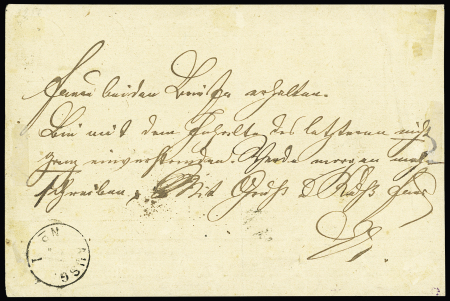 beiden Briefe erhalten.
Bin mit dem Inhalte des letzteren nicht
ganz einverstanden. Werde morgen mehr
schreiben. Mit Gruß & Kuß